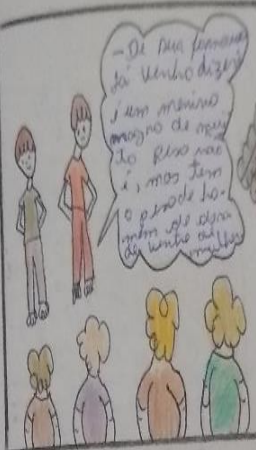 - De sua formosura
já venho dizer:
é um menino
magro de mui
to peso não
é, mas tem
o peso de ho-
mem de obra
de ventre de
mulher